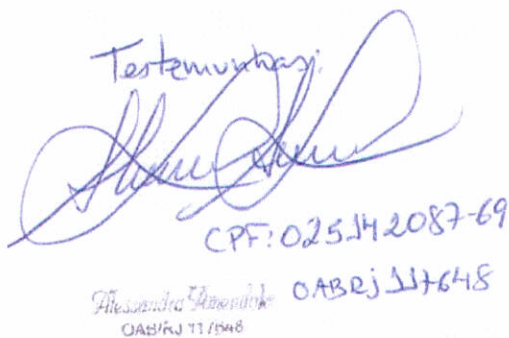 Testemunhas:
CPF: 025.142087-69
OABRJ 117648
Alessandra Amendola
OAB/RJ 117648